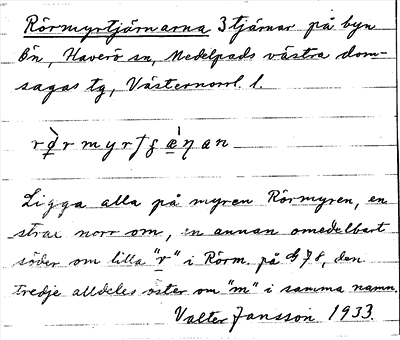 Rörmyrtjärnarna 3 tjärnar på byn
Ön, Haverö sn, Medelpads västra dom-
sagas tg, Västernorrl. l.
Ligga alla på myren Rörmyren, en
strax norr om, en annan omedelbart
söder om lilla "r" i Rörm. på G78, den
tredje alldeles öster om "m" i samma namn.
Valter Jansson 1933.